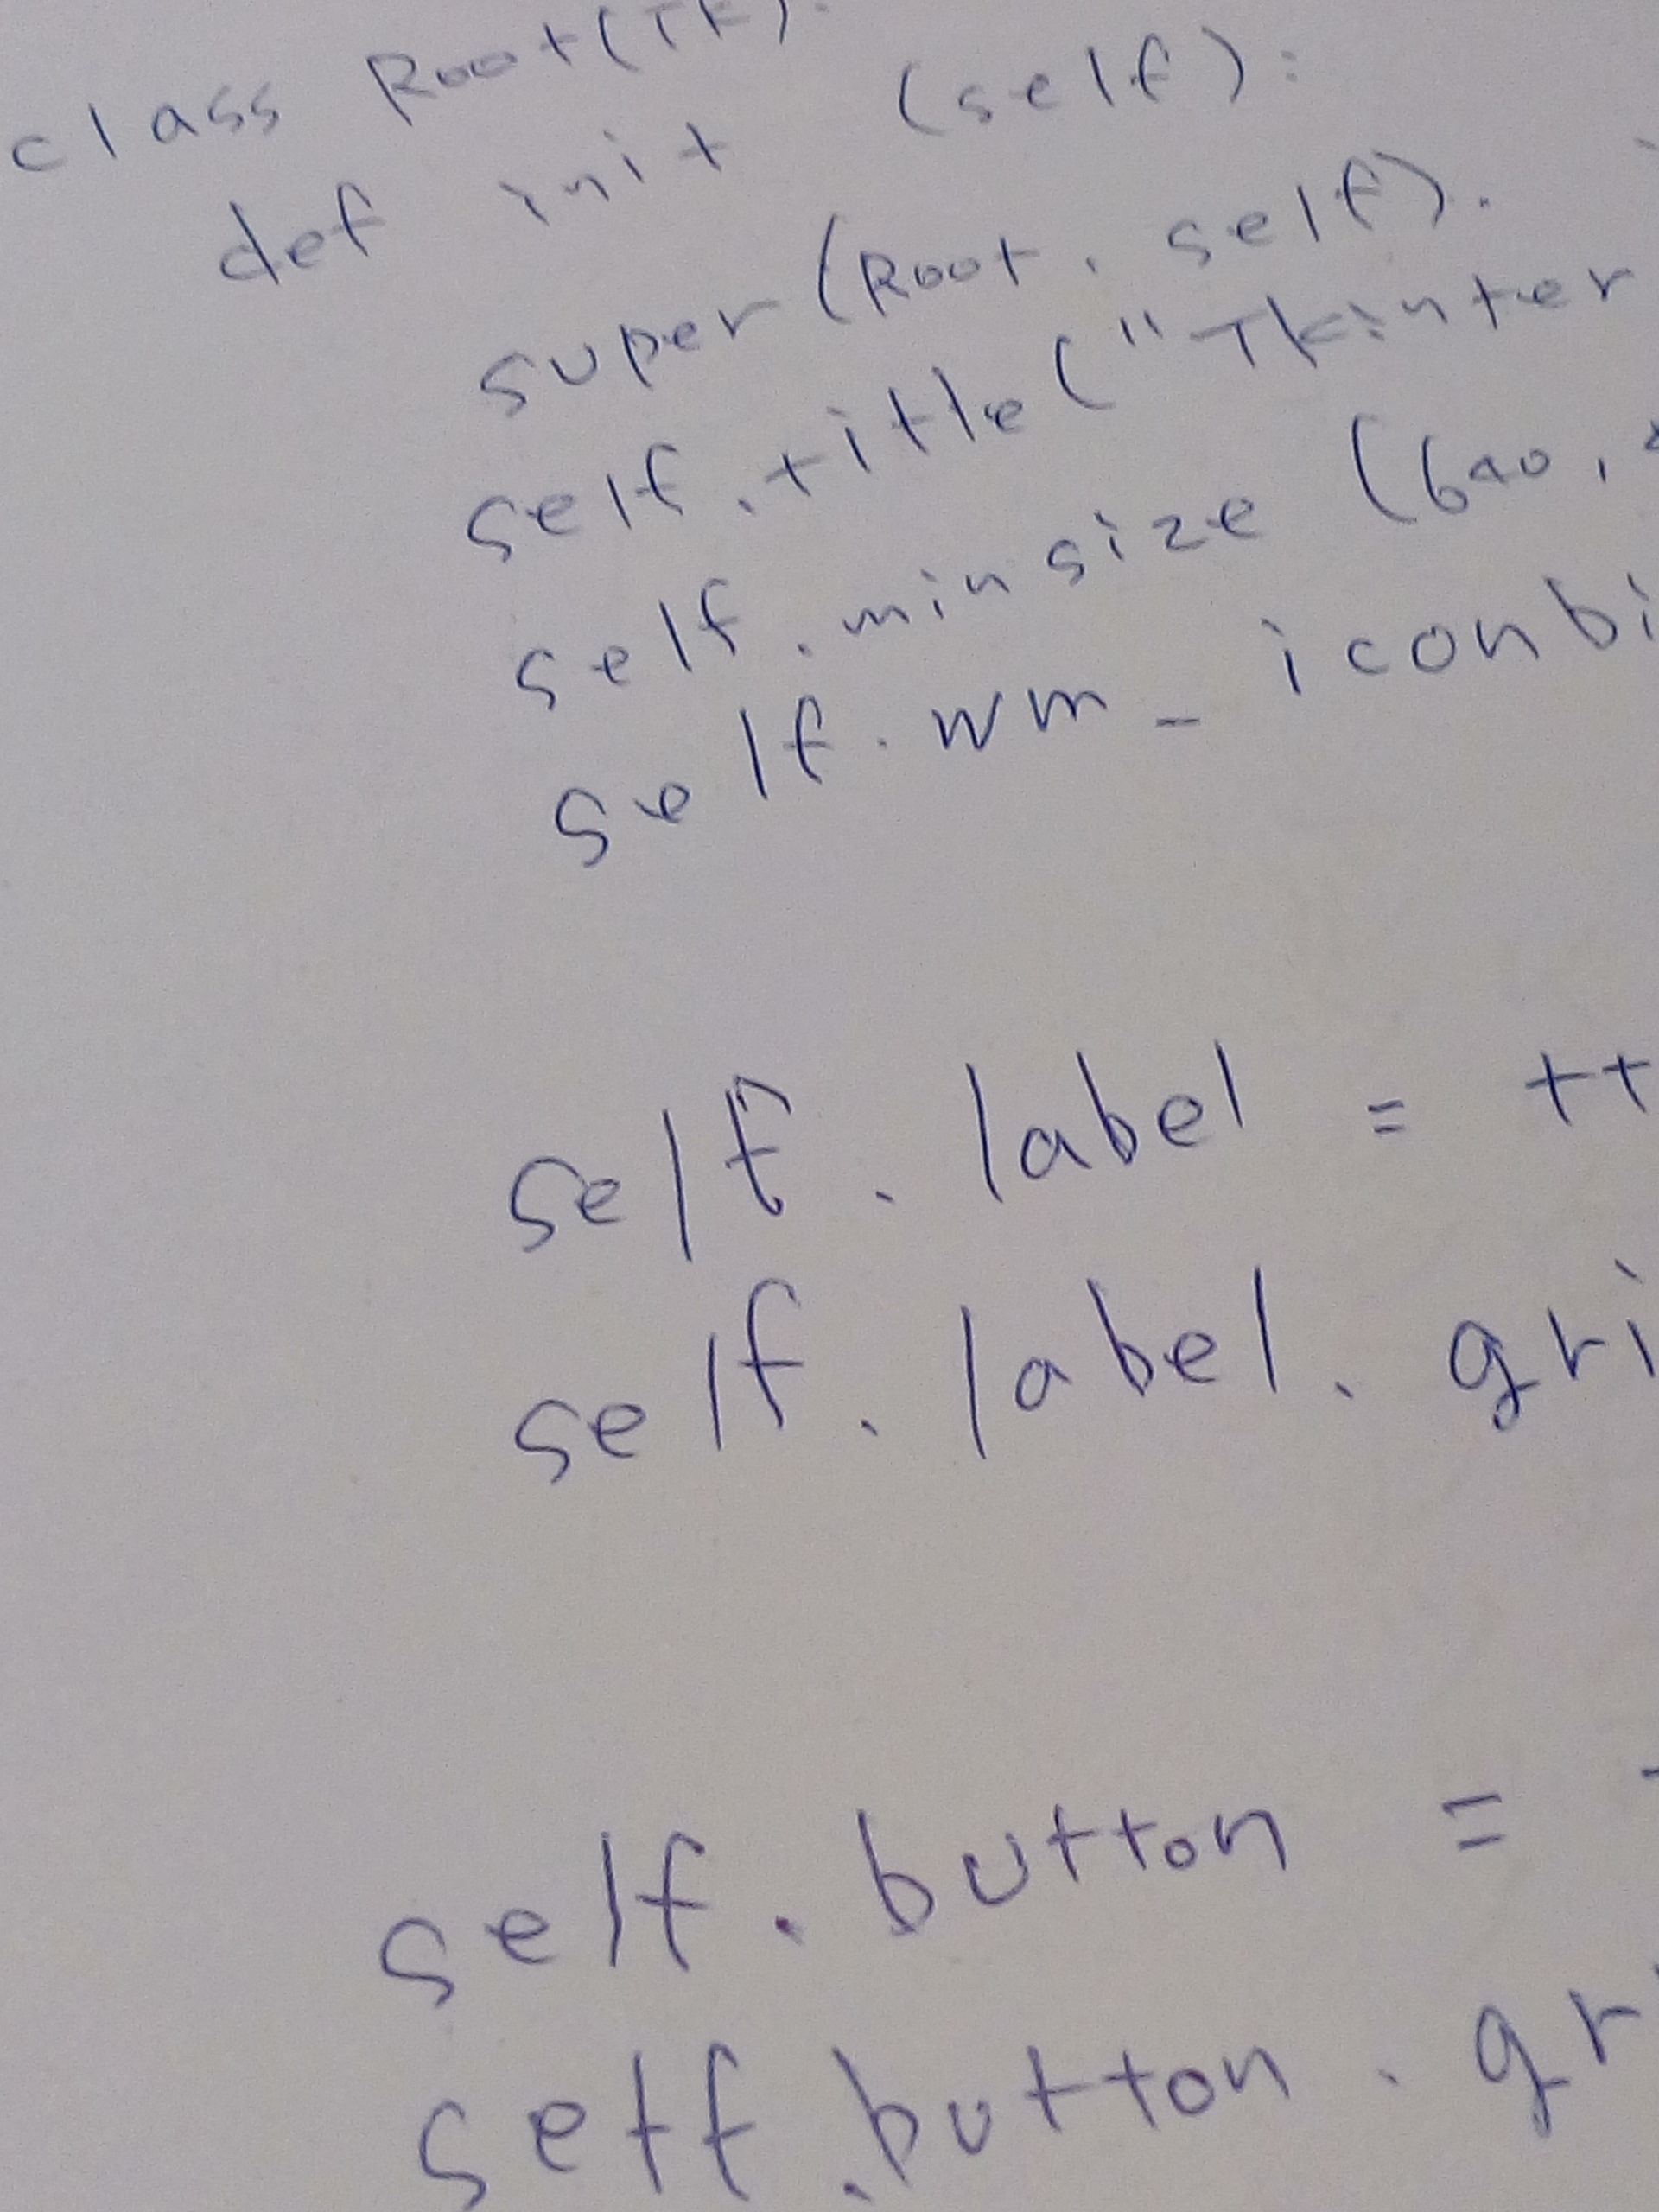 class Root(Tk):
def init (self):
super (Root, self).
self.title ("Tkinter
self.minsize (640,
self.wm_iconbi
self.label = tt
self.label.gri
self.button =
self.button.gr